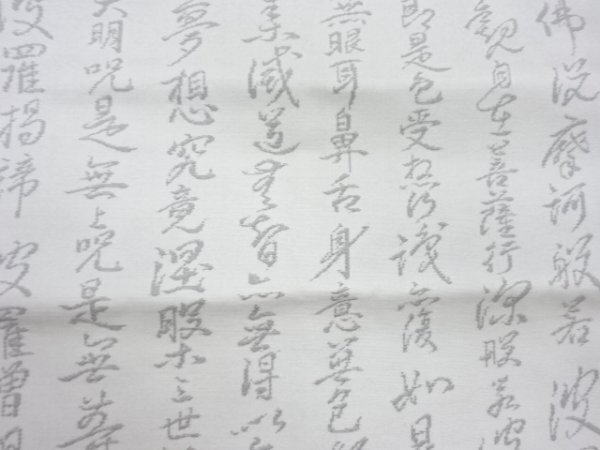 佛説摩訶般若波
觀自在菩薩行深般若波
即是色受想行識亦復如是
無眼耳鼻舌身意無色
集滅道無智亦無得以
夢想究竟涅槃三世
大明呪是無上呪是無等
波羅揭諦波羅僧揭